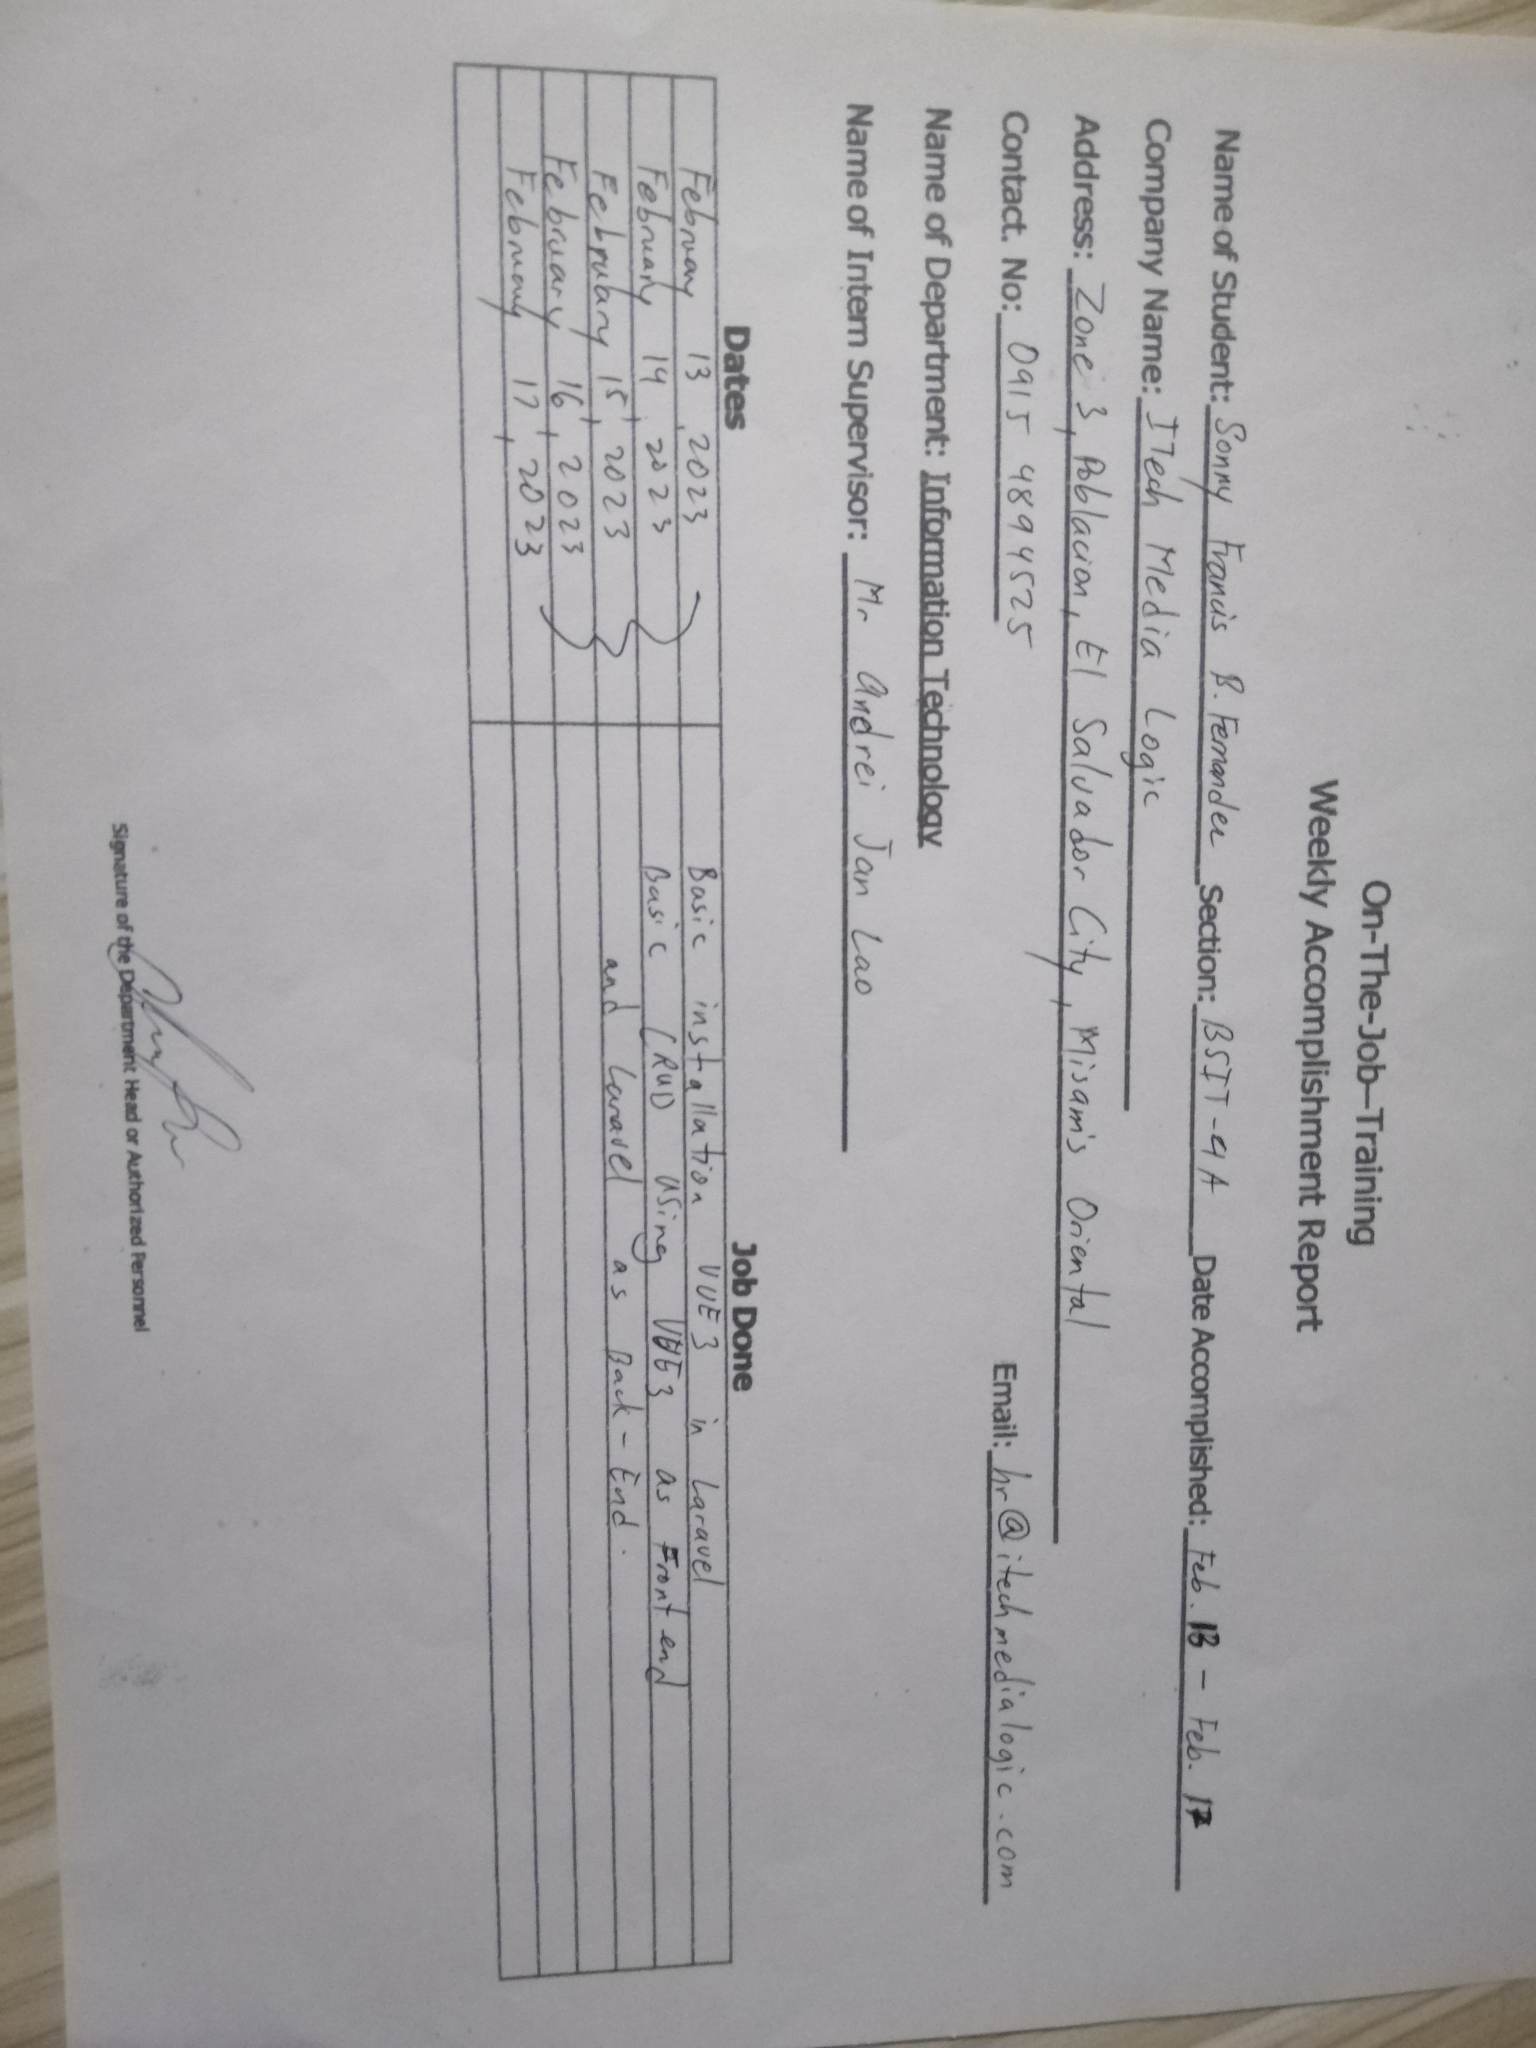 On-The-Job-Training
Weekly Accomplishment Report
Name of Student: Sonny Francis B. Fernandez Section: BSIT-4A Date Accomplished: Feb. 13 - Feb. 17
Company Name: ITech Media Logic
Address: Zone 3, Poblacion, El Salvador City, Misamis Oriental
Contact. No: 0915 4894525 Email: hr@itechmedialogic.com
Name of Department: Information Technology
Name of Intern Supervisor: Mr Andrei Jan Lao
Dates Job Done
February 13, 2023 Basic installation VUE3 in Laravel
February 14, 2023 Basic CRUD using VUE3 as Front end
February 15, 2023 and Laravel as Back-End.
February 16, 2023
February 17, 2023
Signature of the Department Head or Authorized Personnel